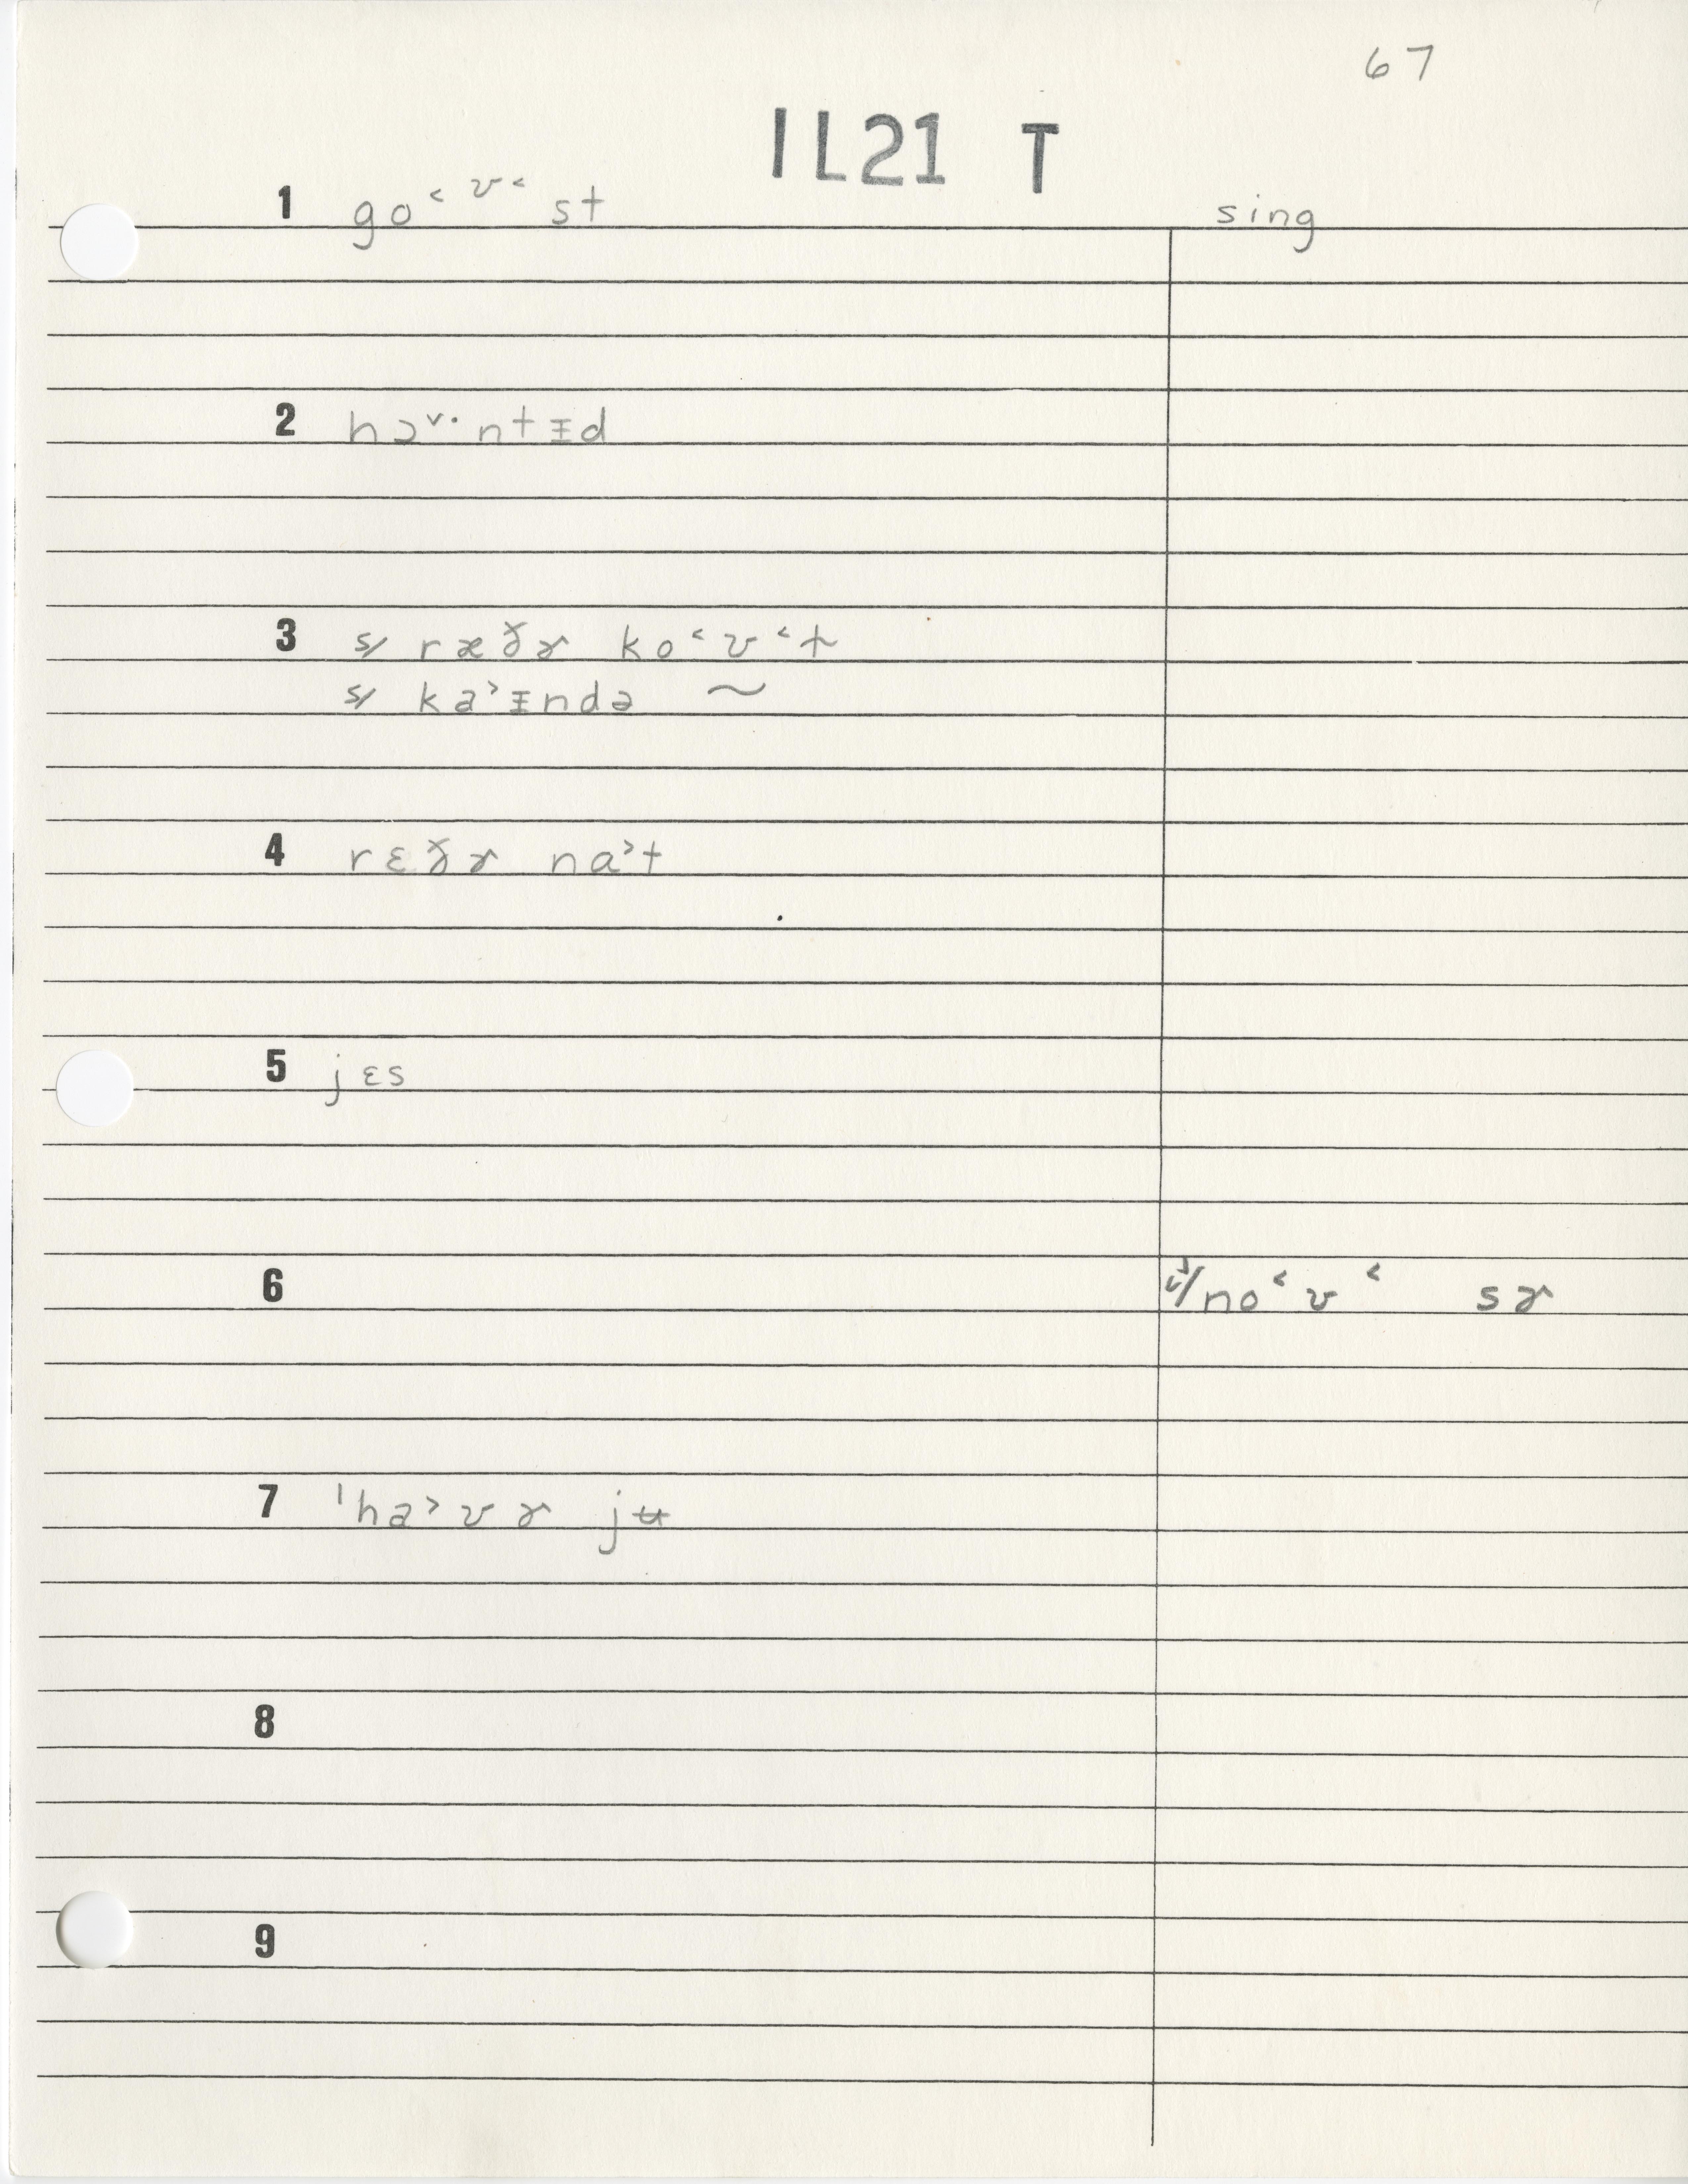 67
IL21 T
1 go˂ ʊ˂ st sing
2 hɔ˅· ntɪ̵d
3 s/ ræðɚ ko˂ʊ˂t̴
s/ ka˃ɪ̵ndə ~
4 rɛðɚ na˃t
5 jɛs
6 no˂ʊ˂ sɚ
7 ˈha˃ʊɚ jʉ
8
9